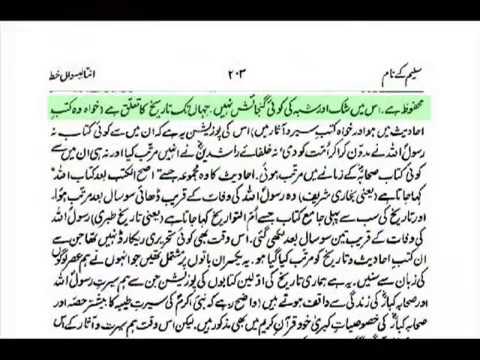 سلیم کے نام ۲۰۳ انتالیسواں خط
محفوظ ہے۔ اس میں شک اور شبہ کی کوئی گنجائش نہیں۔ جہاں تک تاریخ کا تعلق ہے (خواہ وہ کتب
احادیث میں ہو اور خواہ کتب سیر و آثار میں) اس کی پوزیشن یہ ہے کہ ان میں سے کوئی کتاب نہ
رسول اللہؐ نے مدوّن کرا کر اُمّت کو دی نہ خلفائے راشدینؓ نے انہیں مرتب کیا اور نہ ہی ان میں سے
کوئی کتاب صحابہؓ کے زمانے میں مرتب ہوئی۔ احادیث کا وہ مجموعہ جسے (اصح الکتب بعد کتاب اللہ)
کہا جاتا ہے (یعنی بخاری شریف) وہ رسول اللہؐ کی وفات کے قریب ڈھائی سو سال بعد مرتب ہوا۔
اور تاریخ کی سب سے پہلی جامع کتاب جسے اُمّ التواریخ کہا جاتا ہے (یعنی تاریخ طبری) رسول اللہؐ
کی وفات کے قریب تین سو سال بعد لکھی گئی۔ اس وقت بھی کوئی تحریری ریکارڈ نہیں تھا جن سے
ان کتب احادیث و تاریخ کو مرتب کیا گیا ہو۔ یہ یکسر ان باتوں پر مشتمل تھیں جو انہوں نے ہم عصر لوگوں
کی زبان سے سنیں۔ یہ ہے ہماری تاریخ کی اوّلین کتابوں کی پوزیشن جن سے ہم سیرتِ رسول اللہؐ اور
صحابہ کبارؓ کی زندگی سے واقف ہوتے ہیں۔ (واضح رہے کہ نبی اکرمؐ کی سیرتِ طیبہ کا بیشتر حصہ اور
صحابہ کبارؓ کی خصوصیاتِ کبریٰ خود قرآن کریم میں بھی مذکور ہیں۔ لیکن اس وقت ہم سیرت و آثار کے اُس